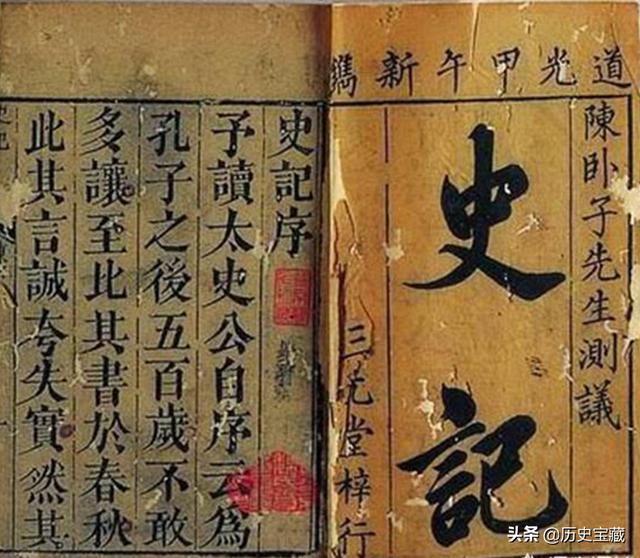 道光甲午新鐫
陳卧子先生測議
史記
三元堂梓行
史記序
予讀太史公自序云為
孔子之後五百歲不敢
多讓至比其書於春秋
此其言誠夸失實然其
头条 @历史宝藏